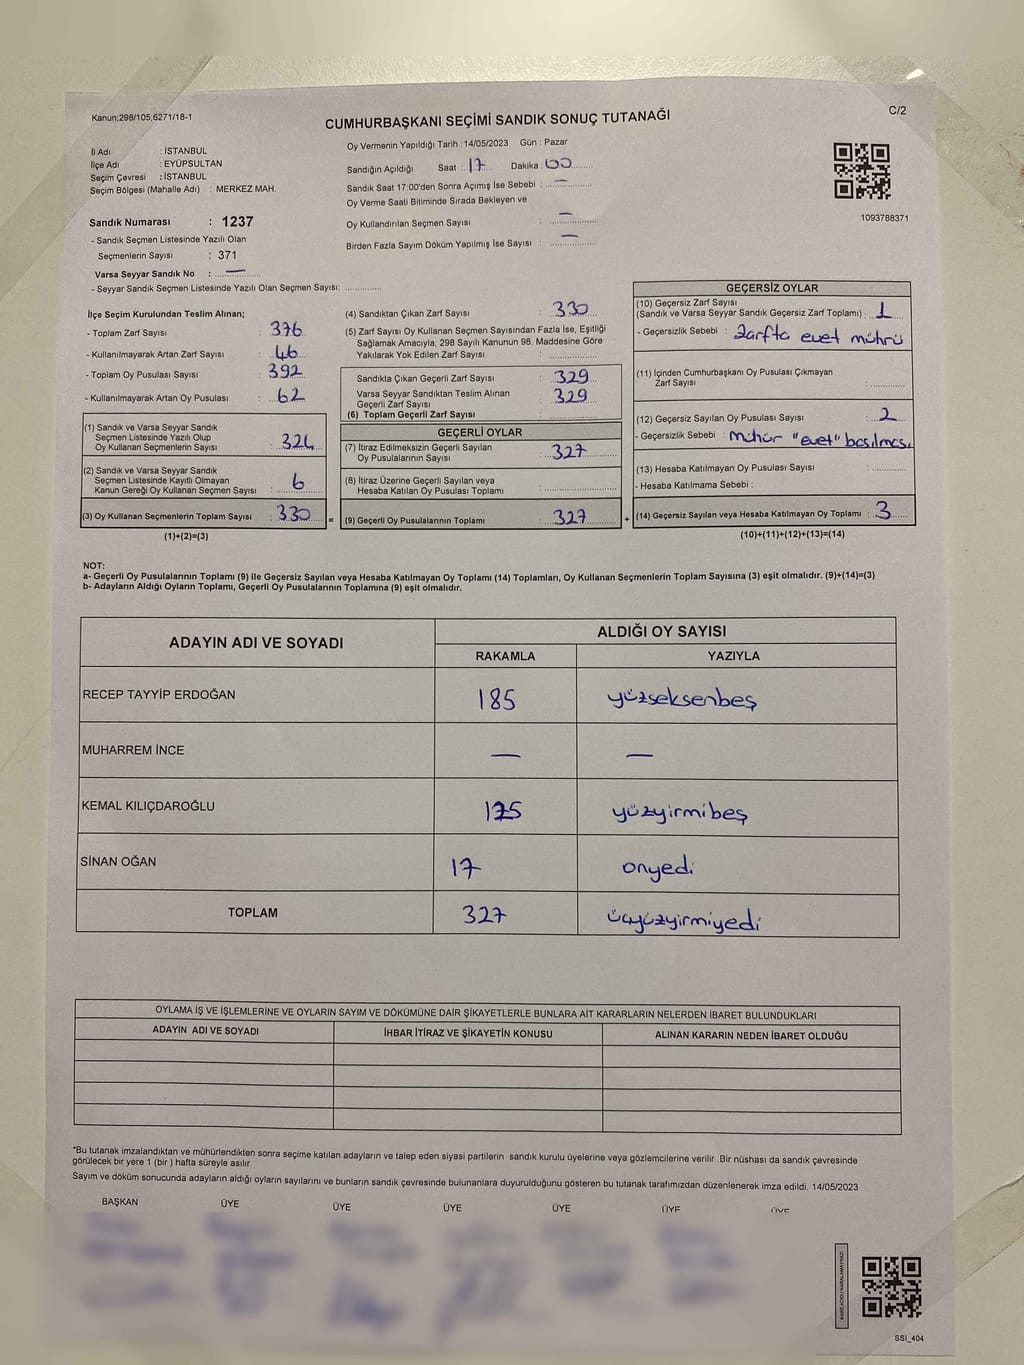 Kanun;298/105,6271/18-1
C/2
CUMHURBAŞKANI SEÇİMİ SANDIK SONUÇ TUTANAĞI
İl Adı : İSTANBUL
İlçe Adı : EYÜPSULTAN
Seçim Çevresi : İSTANBUL
Seçim Bölgesi (Mahalle Adı) : MERKEZ MAH.
Sandık Numarası : 1237
- Sandık Seçmen Listesinde Yazılı Olan
Seçmenlerin Sayısı : 371
Varsa Seyyar Sandık No : —
- Seyyar Sandık Seçmen Listesinde Yazılı Olan Seçmen Sayısı: ..............
Oy Vermenin Yapıldığı Tarih : 14/05/2023 Gün : Pazar
Sandığın Açıldığı Saat : 17 Dakika : 00
Sandık Saat 17:00'den Sonra Açımış İse Sebebi : —
Oy Verme Saati Bitiminde Sırada Bekleyen ve
Oy Kullandırılan Seçmen Sayısı : —
Birden Fazla Sayım Döküm Yapılmış İse Sayısı : —
1093788371
İlçe Seçim Kurulundan Teslim Alınan;
- Toplam Zarf Sayısı : 376
- Kullanılmayarak Artan Zarf Sayısı : 46
- Toplam Oy Pusulası Sayısı : 392
- Kullanılmayarak Artan Oy Pusulası : 62
(1) Sandık ve Varsa Seyyar Sandık
Seçmen Listesinde Yazılı Olup
Oy Kullanan Seçmenlerin Sayısı : 324
(2) Sandık ve Varsa Seyyar Sandık
Seçmen Listesinde Kayıtlı Olmayan
Kanun Gereği Oy Kullanan Seçmen Sayısı : 6
(3) Oy Kullanan Seçmenlerin Toplam Sayısı : 330
(1)+(2)=(3)
(4) Sandıktan Çıkan Zarf Sayısı : 330
(5) Zarf Sayısı Oy Kullanan Seçmen Sayısından Fazla İse, Eşitliği
Sağlamak Amacıyla, 298 Sayılı Kanunun 98. Maddesine Göre
Yakılarak Yok Edilen Zarf Sayısı :
Sandıkta Çıkan Geçerli Zarf Sayısı : 329
Varsa Seyyar Sandıktan Teslim Alınan : 329
Geçerli Zarf Sayısı
(6) Toplam Geçerli Zarf Sayısı
GEÇERLİ OYLAR
(7) İtiraz Edilmeksizin Geçerli Sayılan
Oy Pusulalarının Sayısı : 327
(8) İtiraz Üzerine Geçerli Sayılan veya
Hesaba Katılan Oy Pusulası Toplamı :
= (9) Geçerli Oy Pusulalarının Toplamı : 327 +
GEÇERSİZ OYLAR
(10) Geçersiz Zarf Sayısı
(Sandık ve Varsa Seyyar Sandık Geçersiz Zarf Toplamı) : 1
- Geçersizlik Sebebi : Zarfta evet mührü
(11) İçinden Cumhurbaşkanı Oy Pusulası Çıkmayan
Zarf Sayısı :
(12) Geçersiz Sayılan Oy Pusulası Sayısı : 2
- Geçersizlik Sebebi : Mühür "evet" basılması
(13) Hesaba Katılmayan Oy Pusulası Sayısı :
- Hesaba Katılmama Sebebi :
(14) Geçersiz Sayılan veya Hesaba Katılmayan Oy Toplamı : 3
(10)+(11)+(12)+(13)=(14)
NOT:
a- Geçerli Oy Pusulalarının Toplamı (9) ile Geçersiz Sayılan veya Hesaba Katılmayan Oy Toplamı (14) Toplamları, Oy Kullanan Seçmenlerin Toplam Sayısına (3) eşit olmalıdır. (9)+(14)=(3)
b- Adayların Aldığı Oyların Toplamı, Geçerli Oy Pusulalarının Toplamına (9) eşit olmalıdır.
ADAYIN ADI VE SOYADI
ALDIĞI OY SAYISI
RAKAMLA YAZIYLA
RECEP TAYYİP ERDOĞAN 185 yüzseksenbeş
MUHARREM İNCE — —
KEMAL KILIÇDAROĞLU 125 yüzyirmibeş
SİNAN OĞAN 17 onyedi
TOPLAM 327 üçyüzyirmiyedi
OYLAMA İŞ VE İŞLEMLERİNE VE OYLARIN SAYIM VE DÖKÜMÜNE DAİR ŞİKAYETLERLE BUNLARA AİT KARARLARIN NELERDEN İBARET BULUNDUKLARI
ADAYIN ADI VE SOYADI İHBAR İTİRAZ VE ŞİKAYETİN KONUSU ALINAN KARARIN NEDEN İBARET OLDUĞU
*Bu tutanak imzalandıktan ve mühürlendikten sonra seçime katılan adayların ve talep eden siyasi partilerin sandık kurulu üyelerine veya gözlemcilerine verilir. Bir nüshası da sandık çevresinde
görülecek bir yere 1 (bir) hafta süreyle asılır.
Sayım ve döküm sonucunda adayların aldığı oyların sayılarını ve bunların sandık çevresinde bulunanlara duyurulduğunu gösteren bu tutanak tarafımızdan düzenlenerek imza edildi. 14/05/2023
BAŞKAN ÜYE ÜYE ÜYE ÜYE ÜYE ÜYE
KARE KODU KARALAMAYINIZ!
SSI_404